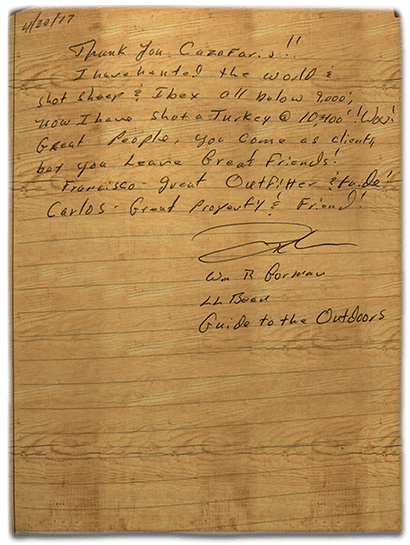 4/20/17
Thank You CazaFaris!!
I have hunted the world &
shot sheep & Ibex all below 9,000',
now I have shot a Turkey @ 10,400'! Wow!
Great People, you come as clients,
but you Leave Great Friends!
Francisco - great Outfitter & Guide!
Carlos - Great Property & Friend!
Wm R Gorman
LL Bean
Guide to the Outdoors